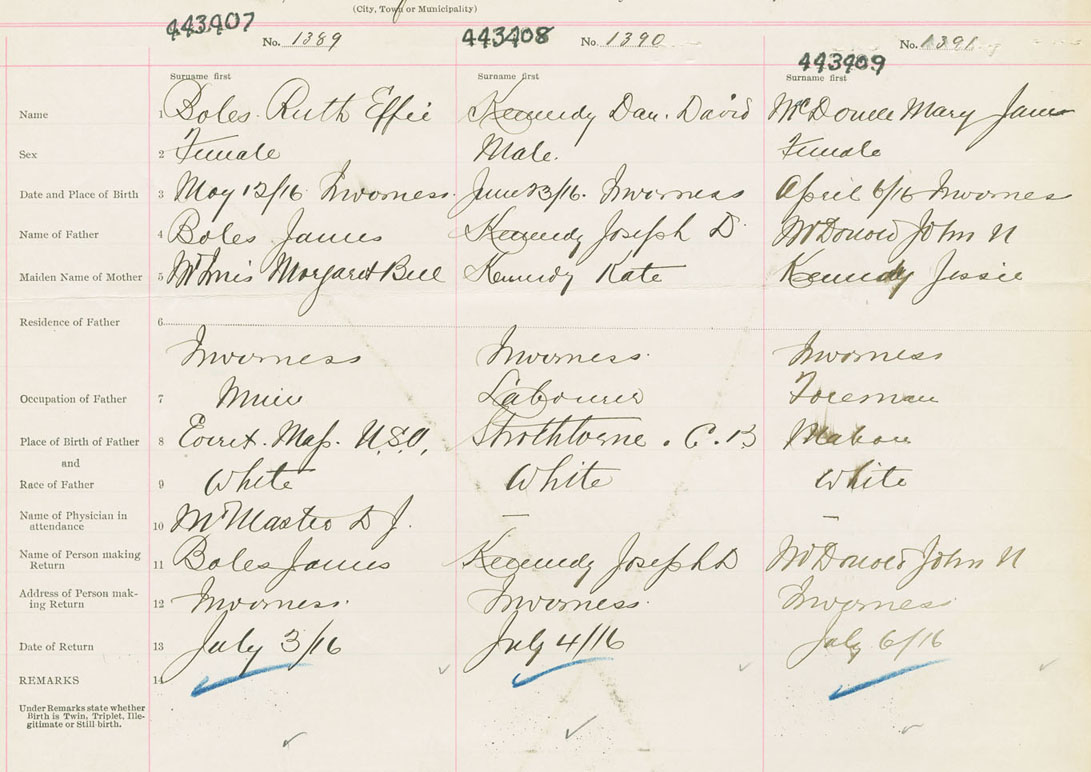 (City, Town or Municipality)
443407 No. 1389 443408 No. 1390 No. 1391
443409
Surname first Surname first Surname first
Name 1 Boles Ruth Effie Kennedy Dan. David McDonell Mary Jane
Sex 2 Female Male. Female
Date and Place of Birth 3 May 12/16 Inverness. June 23/16. Inverness April 6/16 Inverness
Name of Father 4 Boles James Kennedy Joseph D. McDonald John N
Maiden Name of Mother 5 McInnis Margaret Bell Kennedy Kate Kennedy Jessie
Residence of Father 6
Inverness Inverness. Inverness
Occupation of Father 7 Miner Labourer Foreman
Place of Birth of Father 8 Everet. Mass. U.S.A. Strathlorne. C. B Mabou
and
Race of Father 9 White White White
Name of Physician in
attendance 10 McMaster D J. — —
Name of Person making
Return 11 Boles James Kennedy Joseph D McDonald John N
Address of Person mak-
ing Return 12 Inverness. Inverness. Inverness
Date of Return 13 July 3/16 July 4/16 July 6/16
REMARKS 14
Under Remarks state whether
Birth is Twin, Triplet, Ille-
gitimate or Still birth.